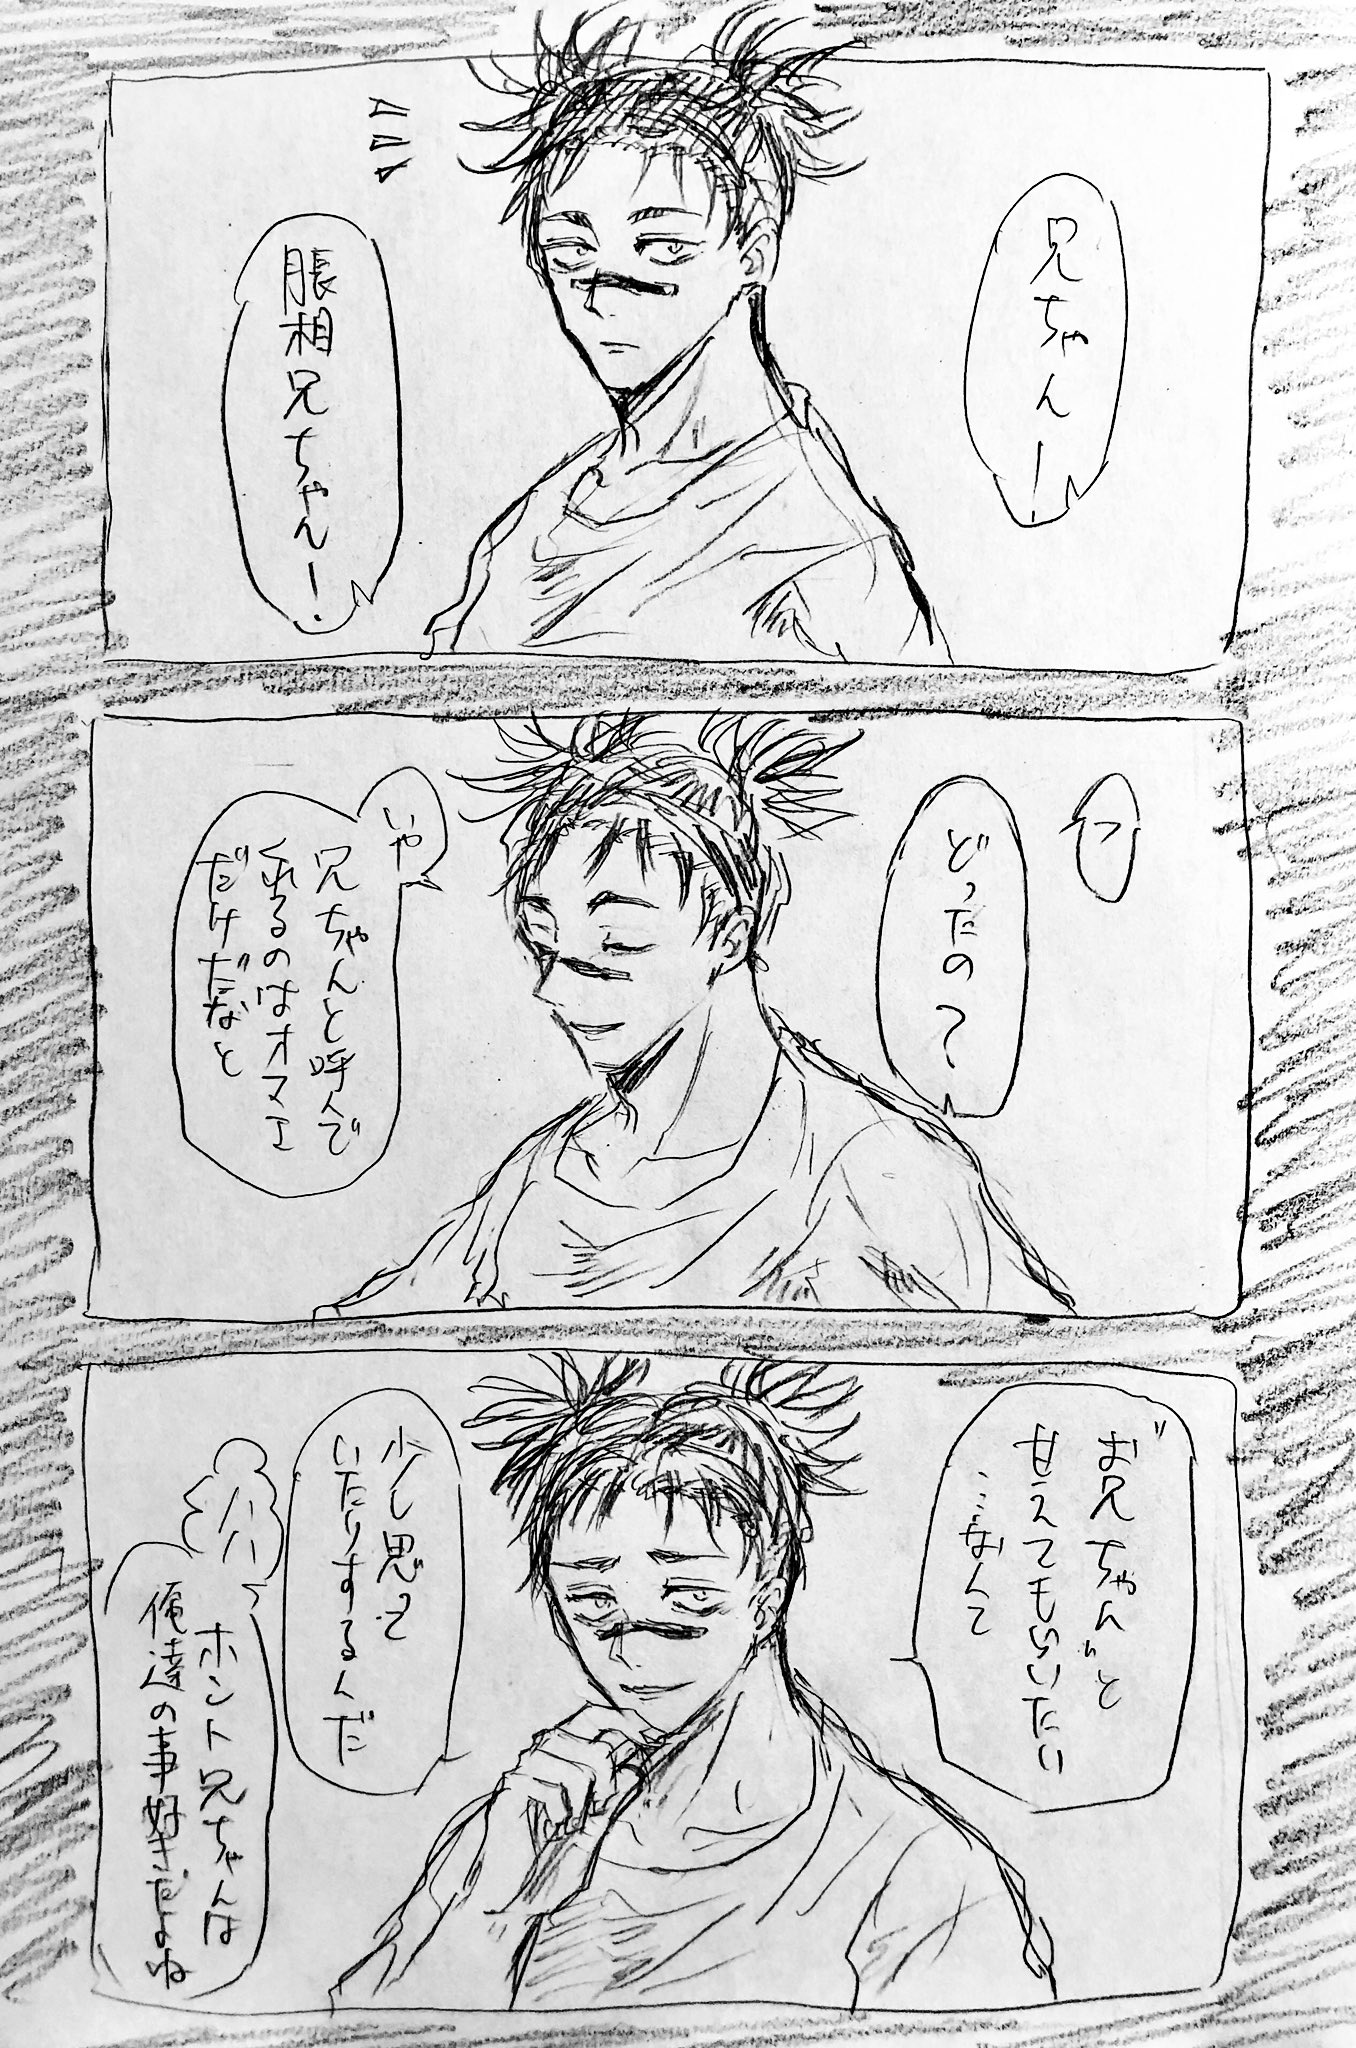 兄ちゃんー!
脹相兄ちゃんー!
っ
どったの?
いや
兄ちゃんと呼んで
くれるのはオマエ
だけだなと
"お兄ちゃん"と
甘えてもらいたい
……なんて
少し思って
いたりするんだ
ハハ
ホント兄ちゃんは
俺達の事好きだよね